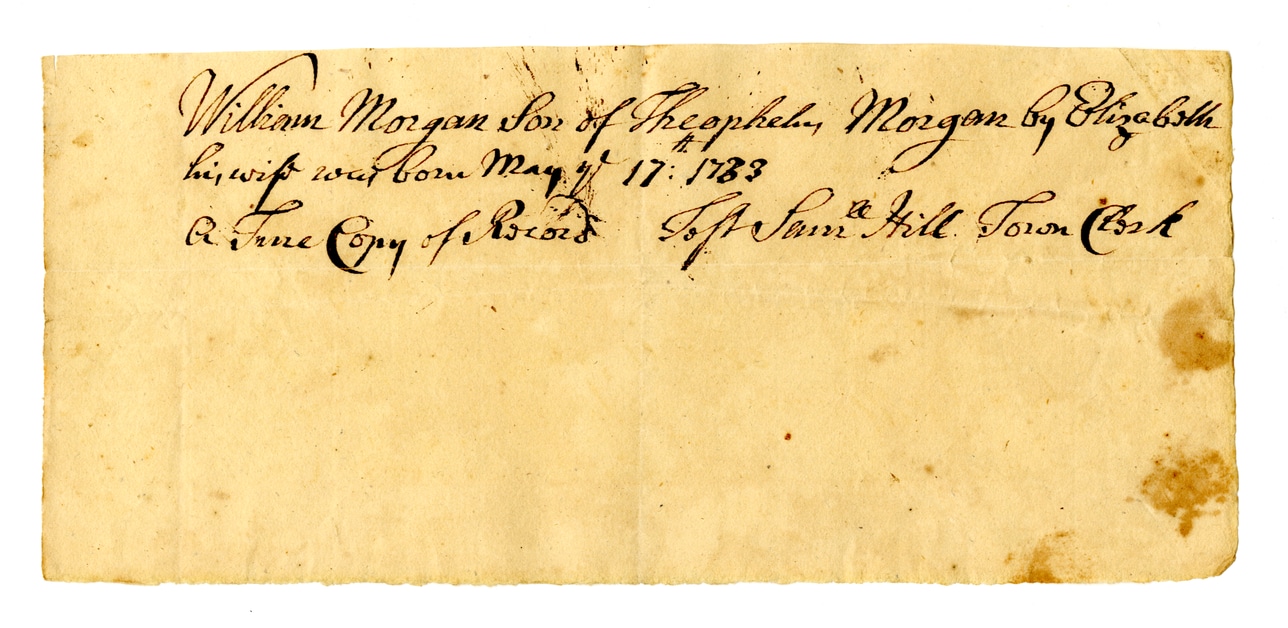 William Morgan Son of Theophelus Morgan by Elizabeth
his wife was born May yᵉ 17ᵗʰ: 1733
A True Copy of Record Test Samˡˡ Hill Town Clerk